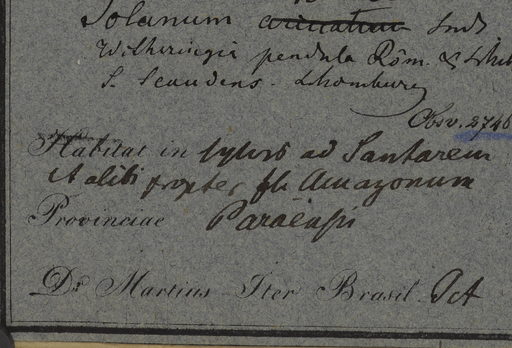 Solanum
Witheringia pendula Röm. & Schult
S. Scandens. Schomburg
Obsv. 2746
Habitat in sylvis ad Santarem
et alibi propter fl. Amazonum
Provinciae Paraënsis
Dr. Martius Iter Brasil. Oct